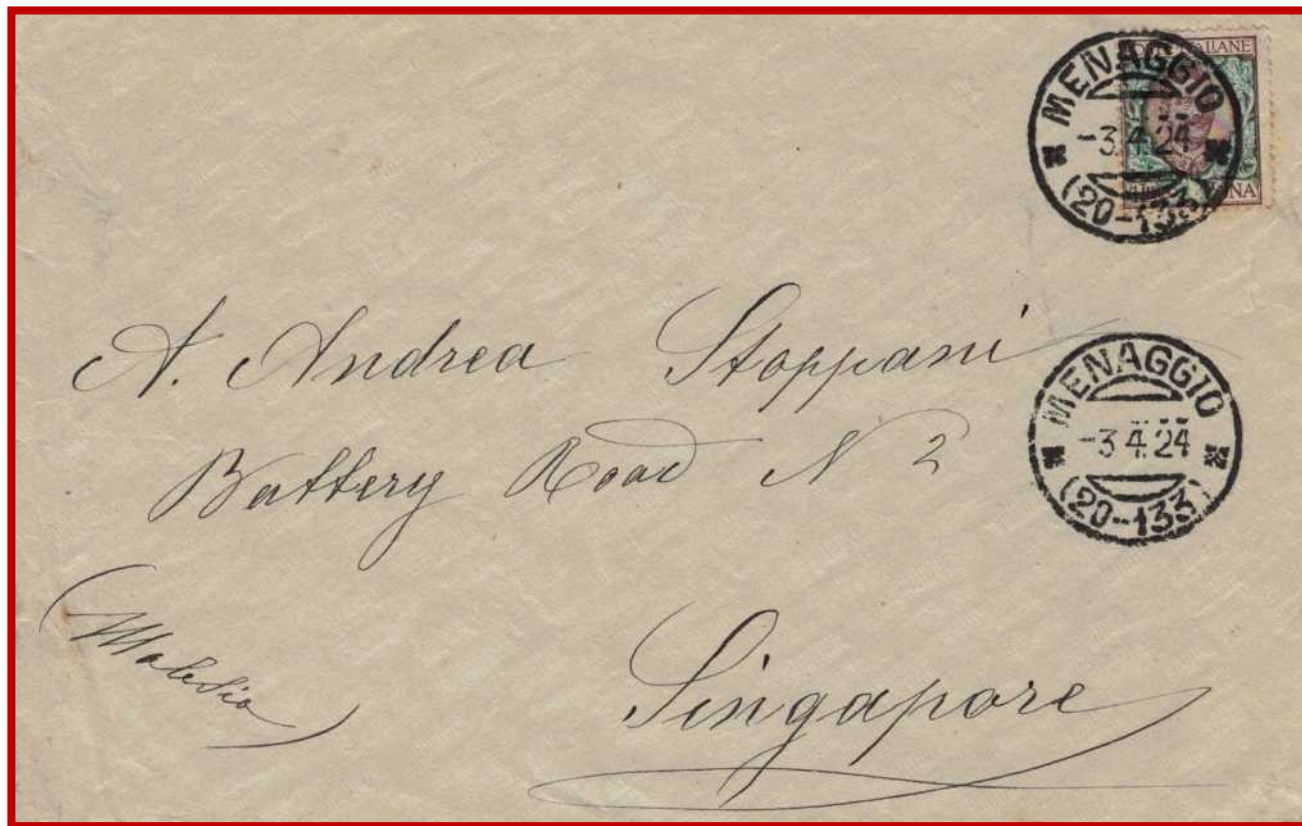 POSTE ITALIANE
MENAGGIO
-3.4.24
(20-133)
UNA
A. Andrea Stoppani
Battery Road N 2
MENAGGIO
-3.4.24
(20-133)
(Malesia)
Singapore